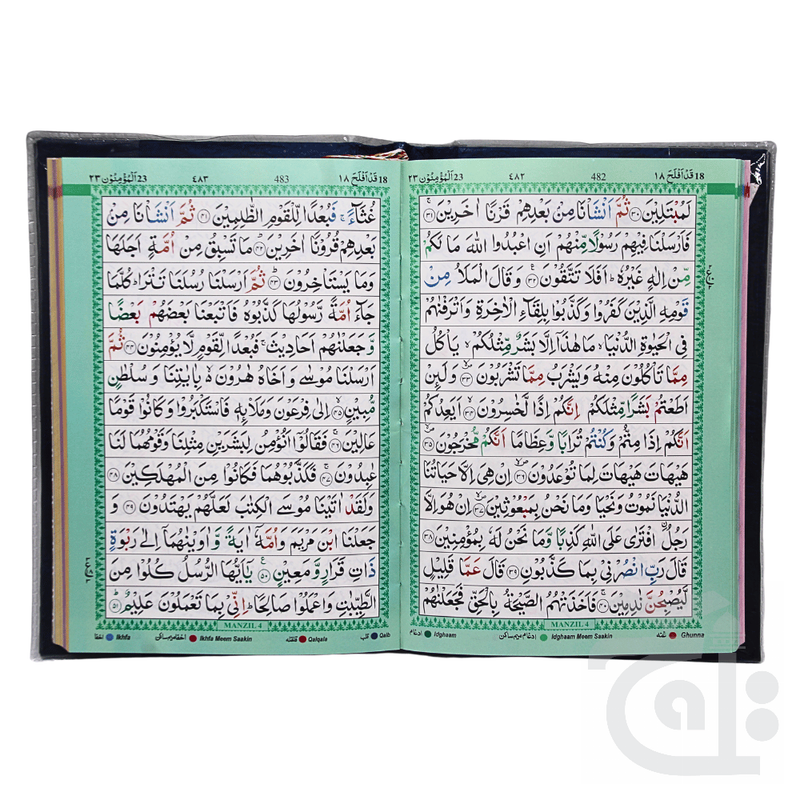 18 قَدْ اَفْلَحَ ١٨ 482 ٤٨٢ 23 اَلْمُؤْمِنُوْن ٢٣
لَمُبْتَلِيْنَ ﴿٣٠﴾ ثُمَّ اَنْشَاْنَا مِنْۢ بَعْدِهِمْ قَرْنًا اٰخَرِيْنَ ﴿٣١﴾
فَاَرْسَلْنَا فِيْهِمْ رَسُوْلًا مِّنْهُمْ اَنِ اعْبُدُوا اللّٰهَ مَا لَكُمْ
مِّنْ اِلٰهٍ غَيْرُهٗ ؕ اَفَلَا تَتَّقُوْنَ ﴿٣٢﴾ وَقَالَ الْمَلَاُ مِنْ
قَوْمِهِ الَّذِيْنَ كَفَرُوْا وَكَذَّبُوْا بِلِقَآءِ الْاٰخِرَةِ وَاَتْرَفْنٰهُمْ
فِي الْحَيٰوةِ الدُّنْيَا ۙ مَا هٰذَاۤ اِلَّا بَشَرٌ مِّثْلُكُمْ ۙ يَاْكُلُ
مِمَّا تَاْكُلُوْنَ مِنْهُ وَيَشْرَبُ مِمَّا تَشْرَبُوْنَ ﴿٣٣﴾ وَلَئِنْ
اَطَعْتُمْ بَشَرًا مِّثْلَكُمْ اِنَّكُمْ اِذًا لَّخٰسِرُوْنَ ﴿٣٤﴾ اَيَعِدُكُمْ
اَنَّكُمْ اِذَا مِتُّمْ وَكُنْتُمْ تُرَابًا وَّعِظَامًا اَنَّكُمْ مُّخْرَجُوْنَ ﴿٣٥﴾
هَيْهَاتَ هَيْهَاتَ لِمَا تُوْعَدُوْنَ ﴿٣٦﴾ اِنْ هِيَ اِلَّا حَيَاتُنَا
الدُّنْيَا نَمُوْتُ وَنَحْيَا وَمَا نَحْنُ بِمَبْعُوْثِيْنَ ﴿٣٧﴾ اِنْ هُوَ اِلَّا
رَجُلُ ۨافْتَرٰى عَلَى اللّٰهِ كَذِبًا وَّمَا نَحْنُ لَهٗ بِمُؤْمِنِيْنَ ﴿٣٨﴾
قَالَ رَبِّ انْصُرْنِيْ بِمَا كَذَّبُوْنِ ﴿٣٩﴾ قَالَ عَمَّا قَلِيْلٍ
لَّيُصْبِحُنَّ نٰدِمِيْنَ ﴿٤٠﴾ فَاَخَذَتْهُمُ الصَّيْحَةُ بِالْحَقِّ فَجَعَلْنٰهُمْ
MANZIL 4
ادغام Idghaam ادغام میم ساکن Idghaam Meem Saakin غنّه Ghunna
18 قَدْ اَفْلَحَ ١٨ 483 ٤٨٣ 23 اَلْمُؤْمِنُوْن ٢٣
غُثَآءً ۚ فَبُعْدًا لِّلْقَوْمِ الظّٰلِمِيْنَ ﴿٤١﴾ ثُمَّ اَنْشَاْنَا مِنْۢ
بَعْدِهِمْ قُرُوْنًا اٰخَرِيْنَ ﴿٤٢﴾ مَا تَسْبِقُ مِنْ اُمَّةٍ اَجَلَهَا
وَمَا يَسْتَاْخِرُوْنَ ﴿٤٣﴾ ثُمَّ اَرْسَلْنَا رُسُلَنَا تَتْرَا ؕ كُلَّمَا
جَآءَ اُمَّةً رَّسُوْلُهَا كَذَّبُوْهُ فَاَتْبَعْنَا بَعْضَهُمْ بَعْضًا
وَّجَعَلْنٰهُمْ اَحَادِيْثَ ۚ فَبُعْدًا لِّقَوْمٍ لَّا يُؤْمِنُوْنَ ﴿٤٤﴾ ثُمَّ
اَرْسَلْنَا مُوْسٰى وَاَخَاهُ هٰرُوْنَ ۙ بِاٰيٰتِنَا وَسُلْطٰنٍ
مُّبِيْنٍ ﴿٤٥﴾ اِلٰى فِرْعَوْنَ وَمَلَا۟ئِهٖ فَاسْتَكْبَرُوْا وَكَانُوْا قَوْمًا
عَالِيْنَ ﴿٤٦﴾ فَقَالُوْۤا اَنُؤْمِنُ لِبَشَرَيْنِ مِثْلِنَا وَقَوْمُهُمَا لَنَا
عٰبِدُوْنَ ﴿٤٧﴾ فَكَذَّبُوْهُمَا فَكَانُوْا مِنَ الْمُهْلَكِيْنَ ﴿٤٨﴾
وَلَقَدْ اٰتَيْنَا مُوْسَى الْكِتٰبَ لَعَلَّهُمْ يَهْتَدُوْنَ ﴿٤٩﴾ وَ
جَعَلْنَا ابْنَ مَرْيَمَ وَاُمَّهٗۤ اٰيَةً وَّاٰوَيْنٰهُمَاۤ اِلٰى رَبْوَةٍ
ذَاتِ قَرَارٍ وَّمَعِيْنٍ ﴿٥٠﴾ يٰۤاَيُّهَا الرُّسُلُ كُلُوْا مِنَ
الطَّيِّبٰتِ وَاعْمَلُوْا صَالِحًا ؕ اِنِّيْ بِمَا تَعْمَلُوْنَ عَلِيْمٌ ﴿٥١﴾
MANZIL 4
اخفا Ikhfa اخفا میم ساکن Ikhfa Meem Saakin قلقله Qalqala قلب Qalb